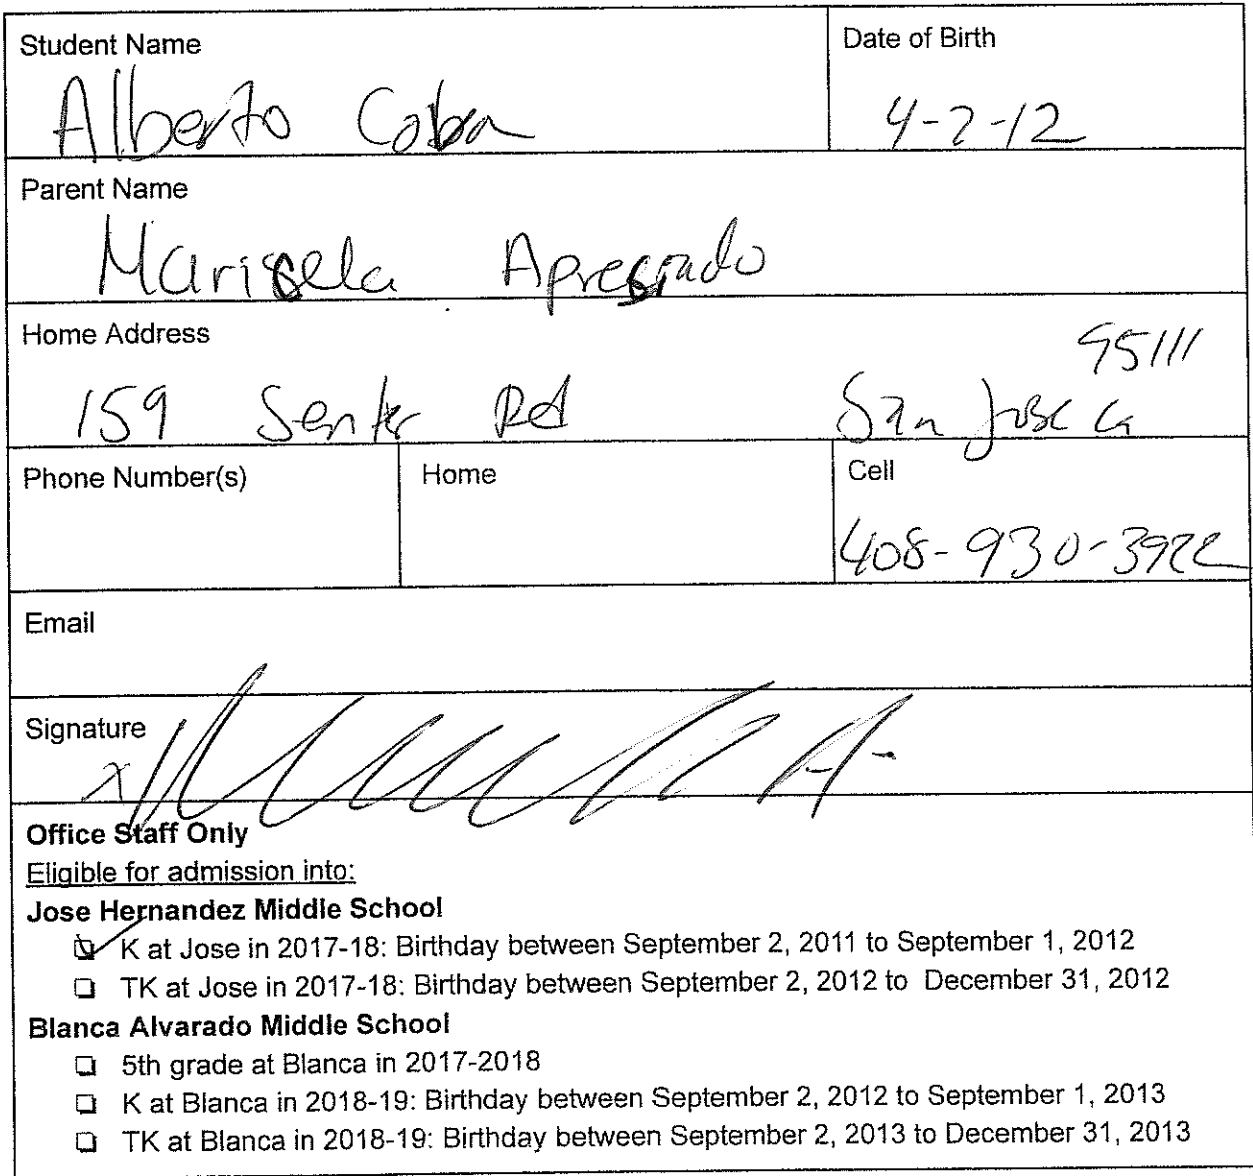 Student Name
Date of Birth
Alberto Coba
4-2-12
Parent Name
Marisela
Home Address
95111
159 Senter Rd San Jose Ca
Phone Number(s)
Home
Cell
408-930-3922
Email
Signature
x
Office Staff Only
Eligible for admission into:
Jose Hernandez Middle School
K at Jose in 2017-18: Birthday between September 2, 2011 to September 1, 2012
TK at Jose in 2017-18: Birthday between September 2, 2012 to December 31, 2012
Blanca Alvarado Middle School
5th grade at Blanca in 2017-2018
K at Blanca in 2018-19: Birthday between September 2, 2012 to September 1, 2013
TK at Blanca in 2018-19: Birthday between September 2, 2013 to December 31, 2013